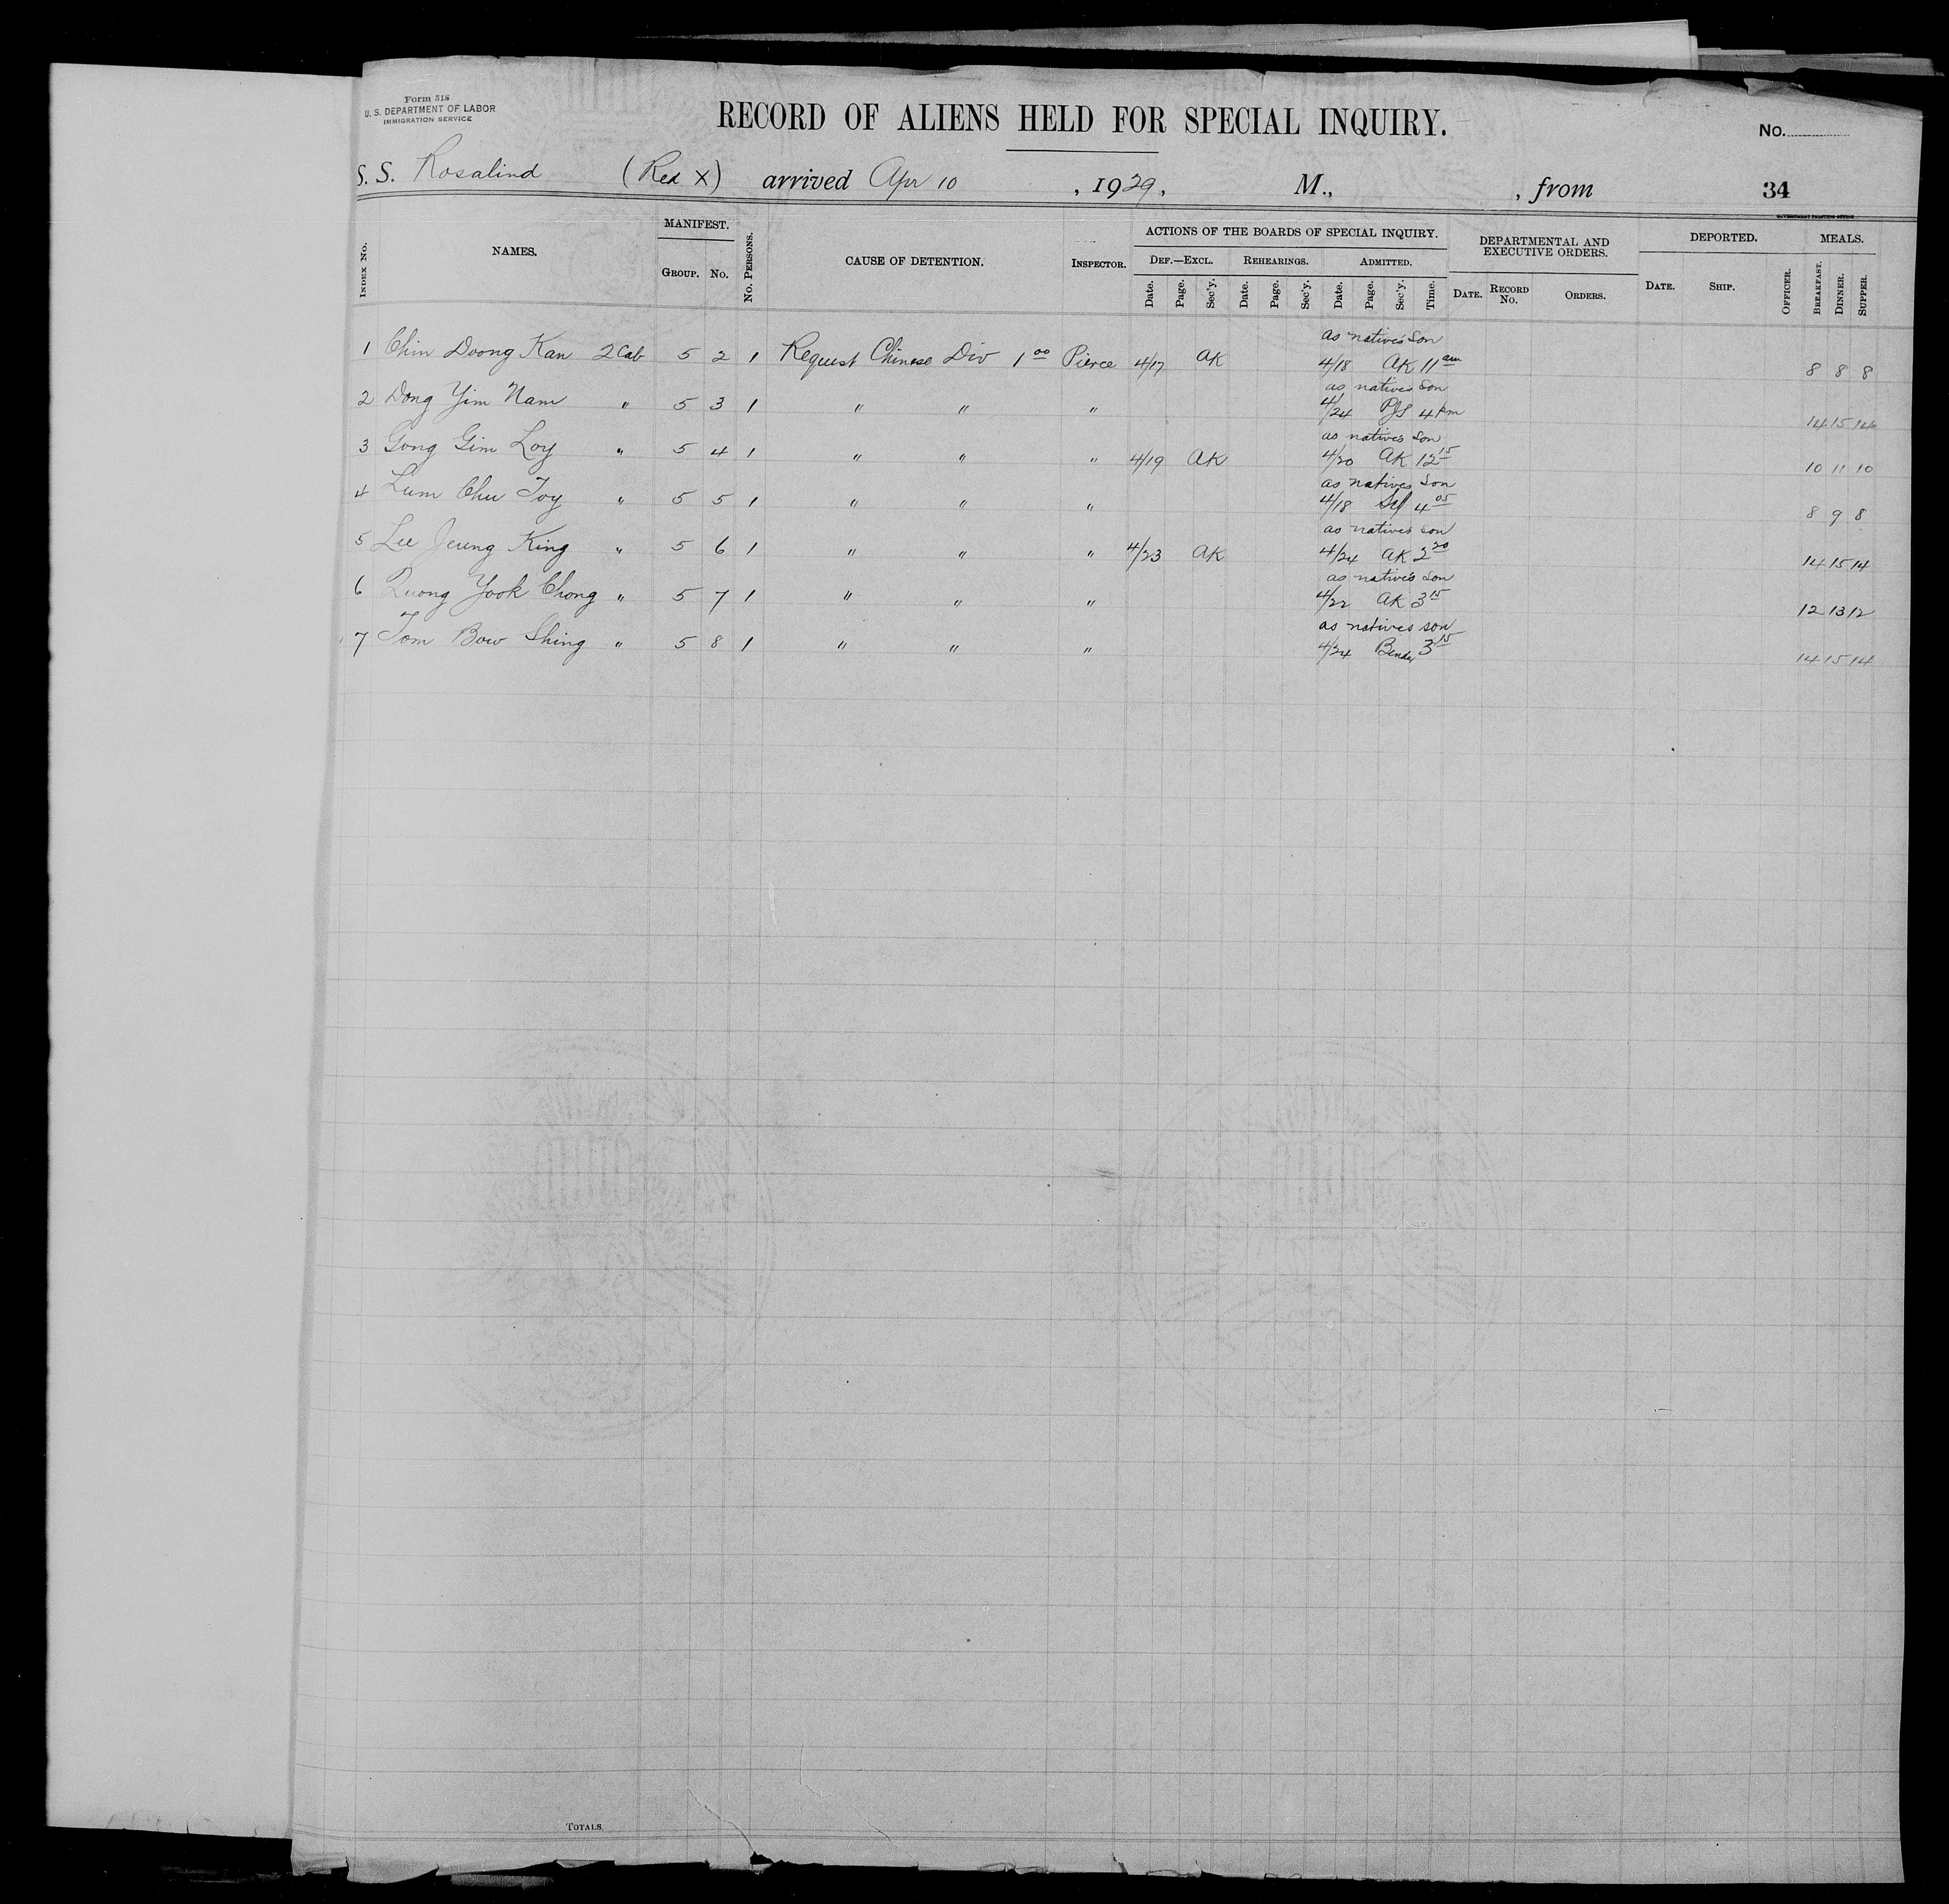 Form 518
U. S. DEPARTMENT OF LABOR
IMMIGRATION SERVICE
RECORD OF ALIENS HELD FOR SPECIAL INQUIRY.
No.
S. S. Rosalind (Red X) arrived Apr 10, 1929, M., , from 34
GOVERNMENT PRINTING OFFICE
INDEX NO. NAMES. MANIFEST. GROUP. NO. NO. PERSONS. CAUSE OF DETENTION. INSPECTOR. ACTIONS OF THE BOARDS OF SPECIAL INQUIRY. DEF.—EXCL. Date. Page. Sec'y. REHEARINGS. Date. Page. Sec'y. ADMITTED. Date. Page. Sec'y. Time. DEPARTMENTAL AND EXECUTIVE ORDERS. DATE. RECORD NO. ORDERS. DEPORTED. DATE. SHIP. OFFICER. MEALS. BREAKFAST. DINNER. SUPPER.
as natives son
1 Chin Doong Kan 2 Cab 5 2 1 Request Chinese Div 1 00 Pierce 4/17 AK 4/18 AK 11 am 8 8 8
as natives son
2 Dong Yim Nam " 5 3 1 " " " 4/24 PJS 4 pm 14 15 14
as natives son
3 Gong Gim Loy " 5 4 1 " " " 4/19 AK 4/20 AK 12 15 10 11 10
as natives son
4 Lum Chu Toy " 5 5 1 " " " 4/18 4 05 8 9 8
as natives son
5 Lee Jeung King " 5 6 1 " " " 4/23 AK 4/24 AK 2 20 14 15 14
as natives son
6 Quong Yook Chong " 5 7 1 " " " 4/22 AK 3 15 12 13 12
as natives son
7 Tom Bow Shing " 5 8 1 " " " 4/24 Bender 3 15 14 15 14
TOTALS,